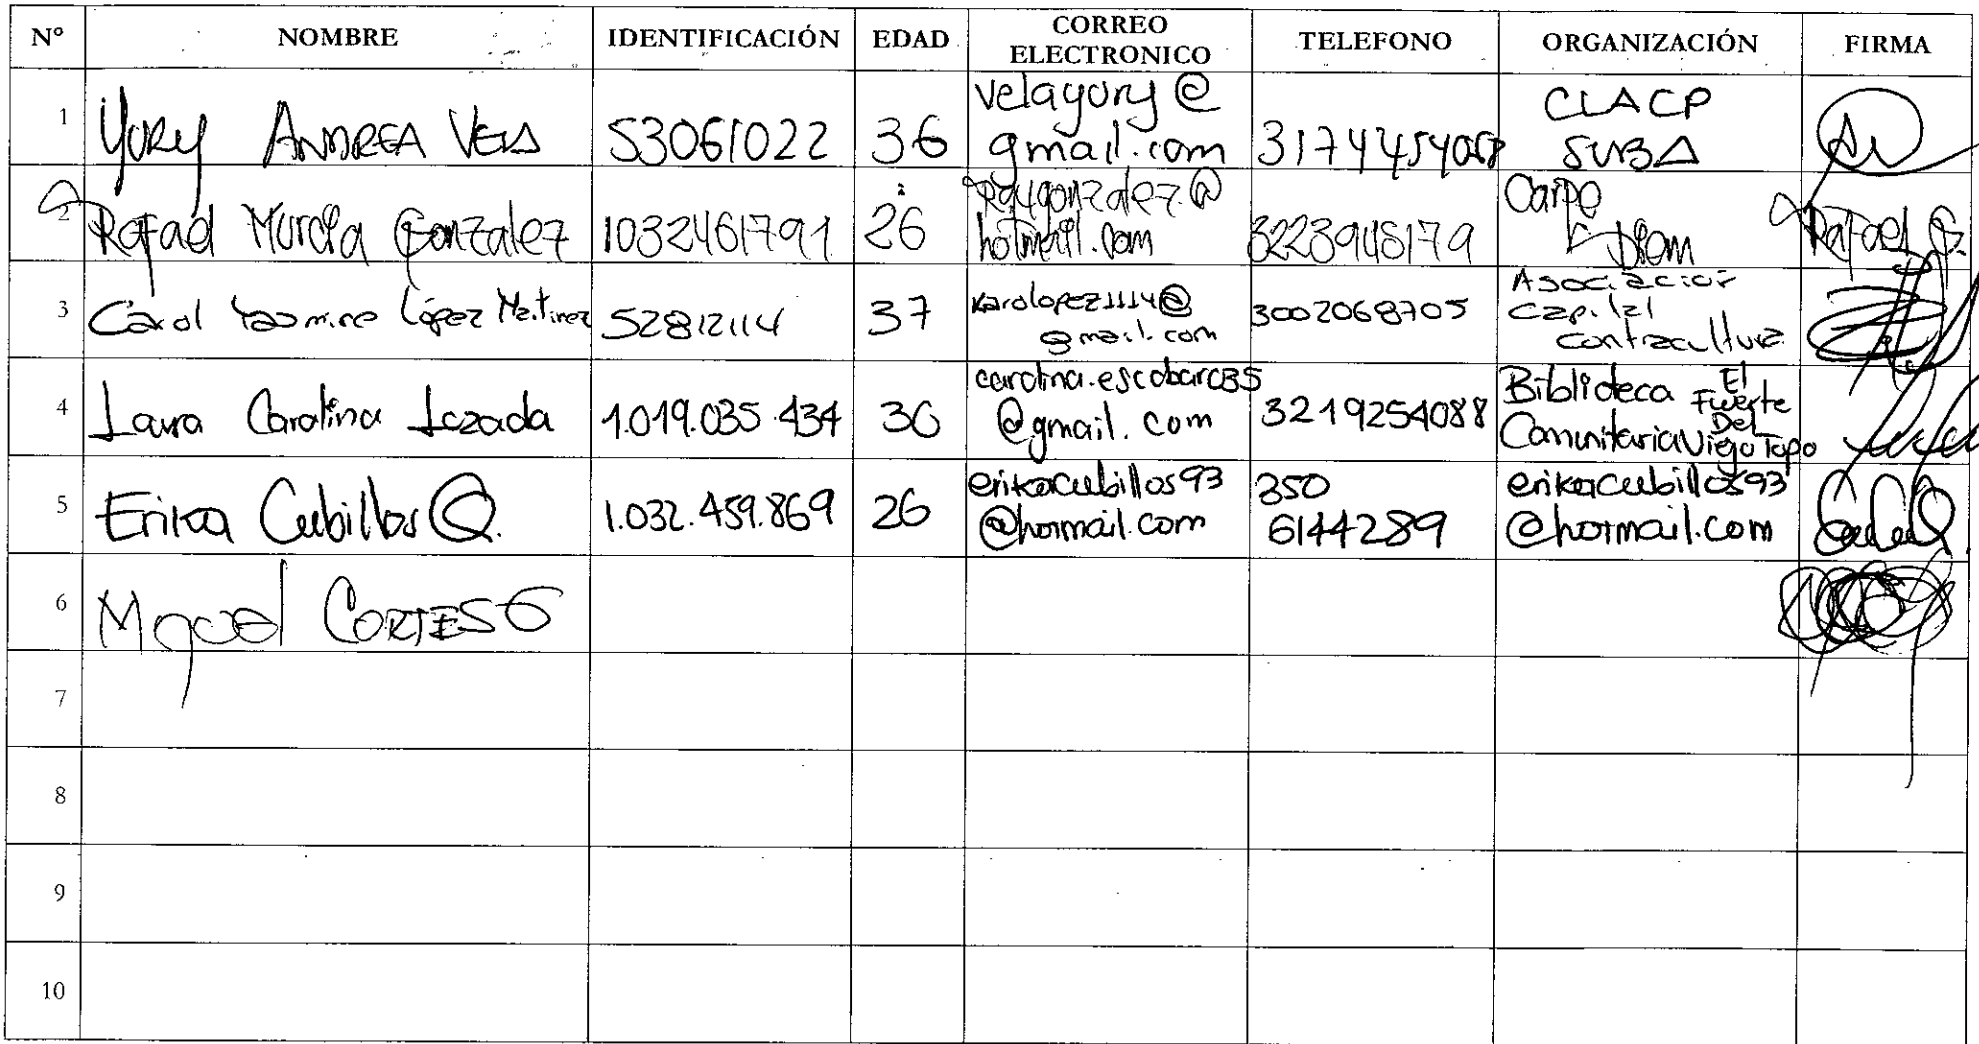 N° NOMBRE IDENTIFICACIÓN EDAD CORREO ELECTRONICO TELEFONO ORGANIZACIÓN FIRMA
1 Yury ANDREA VELA 53061022 36 velayury@gmail.com CLACP SUBA
2 Rafael Murcia Gonzalez 1032461791 26 hotmail.com 3223945179 Carpe Diem Rafael G.
3 Carol Yasmine López Martinez 52812114 37 karolopez1114@gmail.com 3002068705 Asociación Capital Contracultura
4 Laura Carolina Lozada 1.019.035 434 30 @gmail.com 3219254088 Biblioteca Comunitaria El Fuerte Del Viejo Topo
5 Erika Cubillos Q. 1.032.459.869 26 erikacubillos93@hotmail.com 350 6144289 erikacubillos93@hotmail.com
6 Miguel CORTES G
7
8
9
10